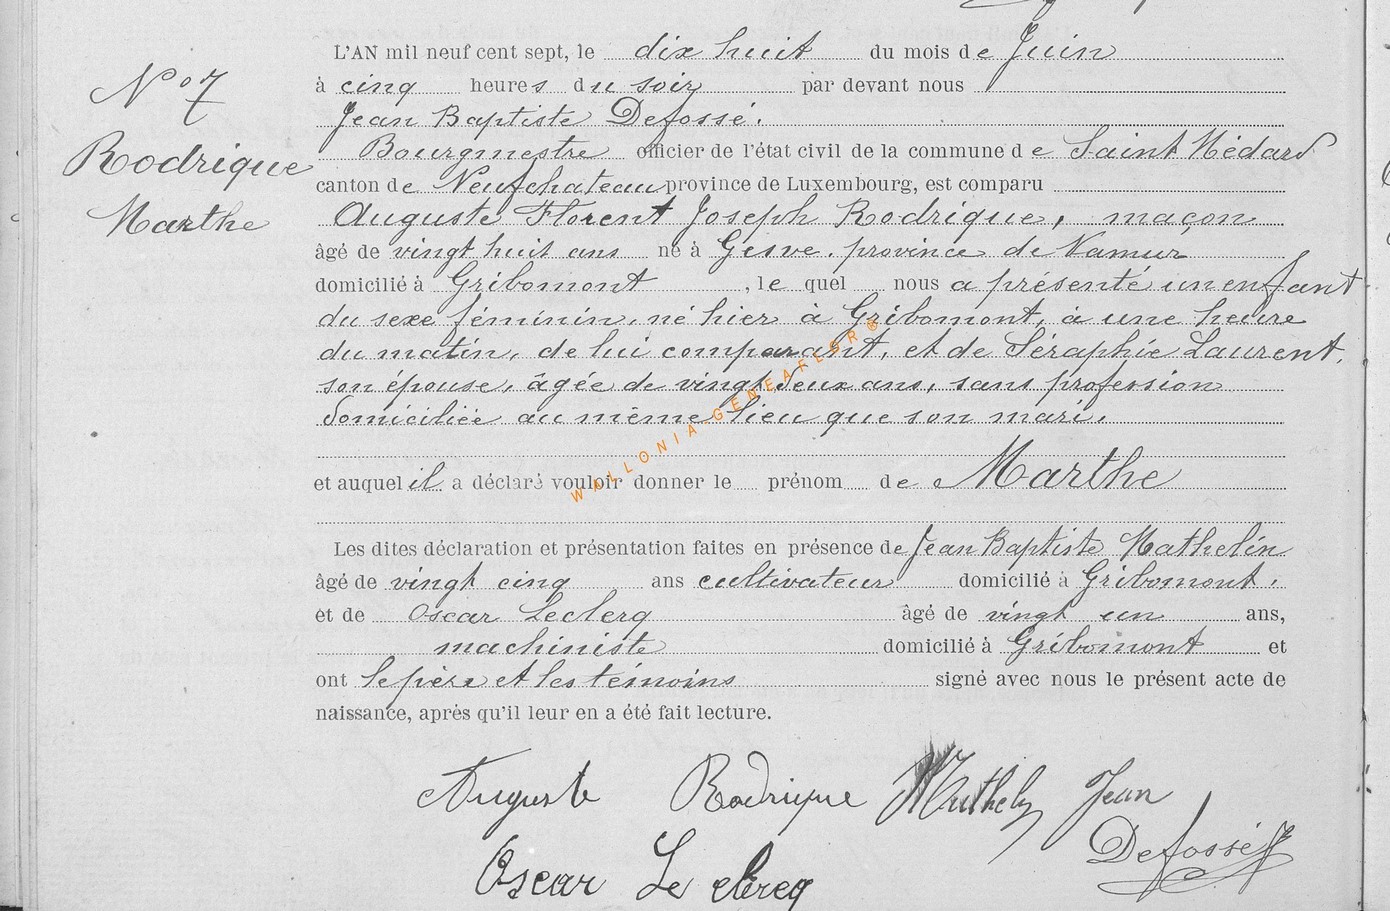 L'AN mil neuf cent sept, le dix huit du mois de Juin
N° 7
à cinq heures du soir par devant nous
Jean Baptiste Defossé.
Rodrique
Bourgmestre officier de l'état civil de la commune de Saint Médard
canton de Neufchateau province de Luxembourg, est comparu
Marthe
Auguste Florent Joseph Rodrique, maçon
âgé de vingt huit ans né à Gesve. province de Namur
domicilié à Gribomont, le quel nous a présenté un enfant
du sexe féminin, né hier à Gribomont, à une heure
du matin, de lui comparant, et de Séraphie Laurent,
son épouse, âgée de vingt deux ans, sans profession
domiciliée au même lieu que son mari.
WALLONIA-GENEAFLOR®
et auquel il a déclaré vouloir donner le prénom de Marthe
Les dites déclaration et présentation faites en présence de Jean Baptiste Mathelin
âgé de vingt cinq ans cultivateur domicilié à Gribomont,
et de Oscar Leclerq âgé de vingt un ans,
machiniste domicilié à Gribomont et
ont le père et les témoins signé avec nous le présent acte de
naissance, après qu'il leur en a été fait lecture.
Auguste Rodrique Mathelin Jean
Defossé
Oscar Le clercq